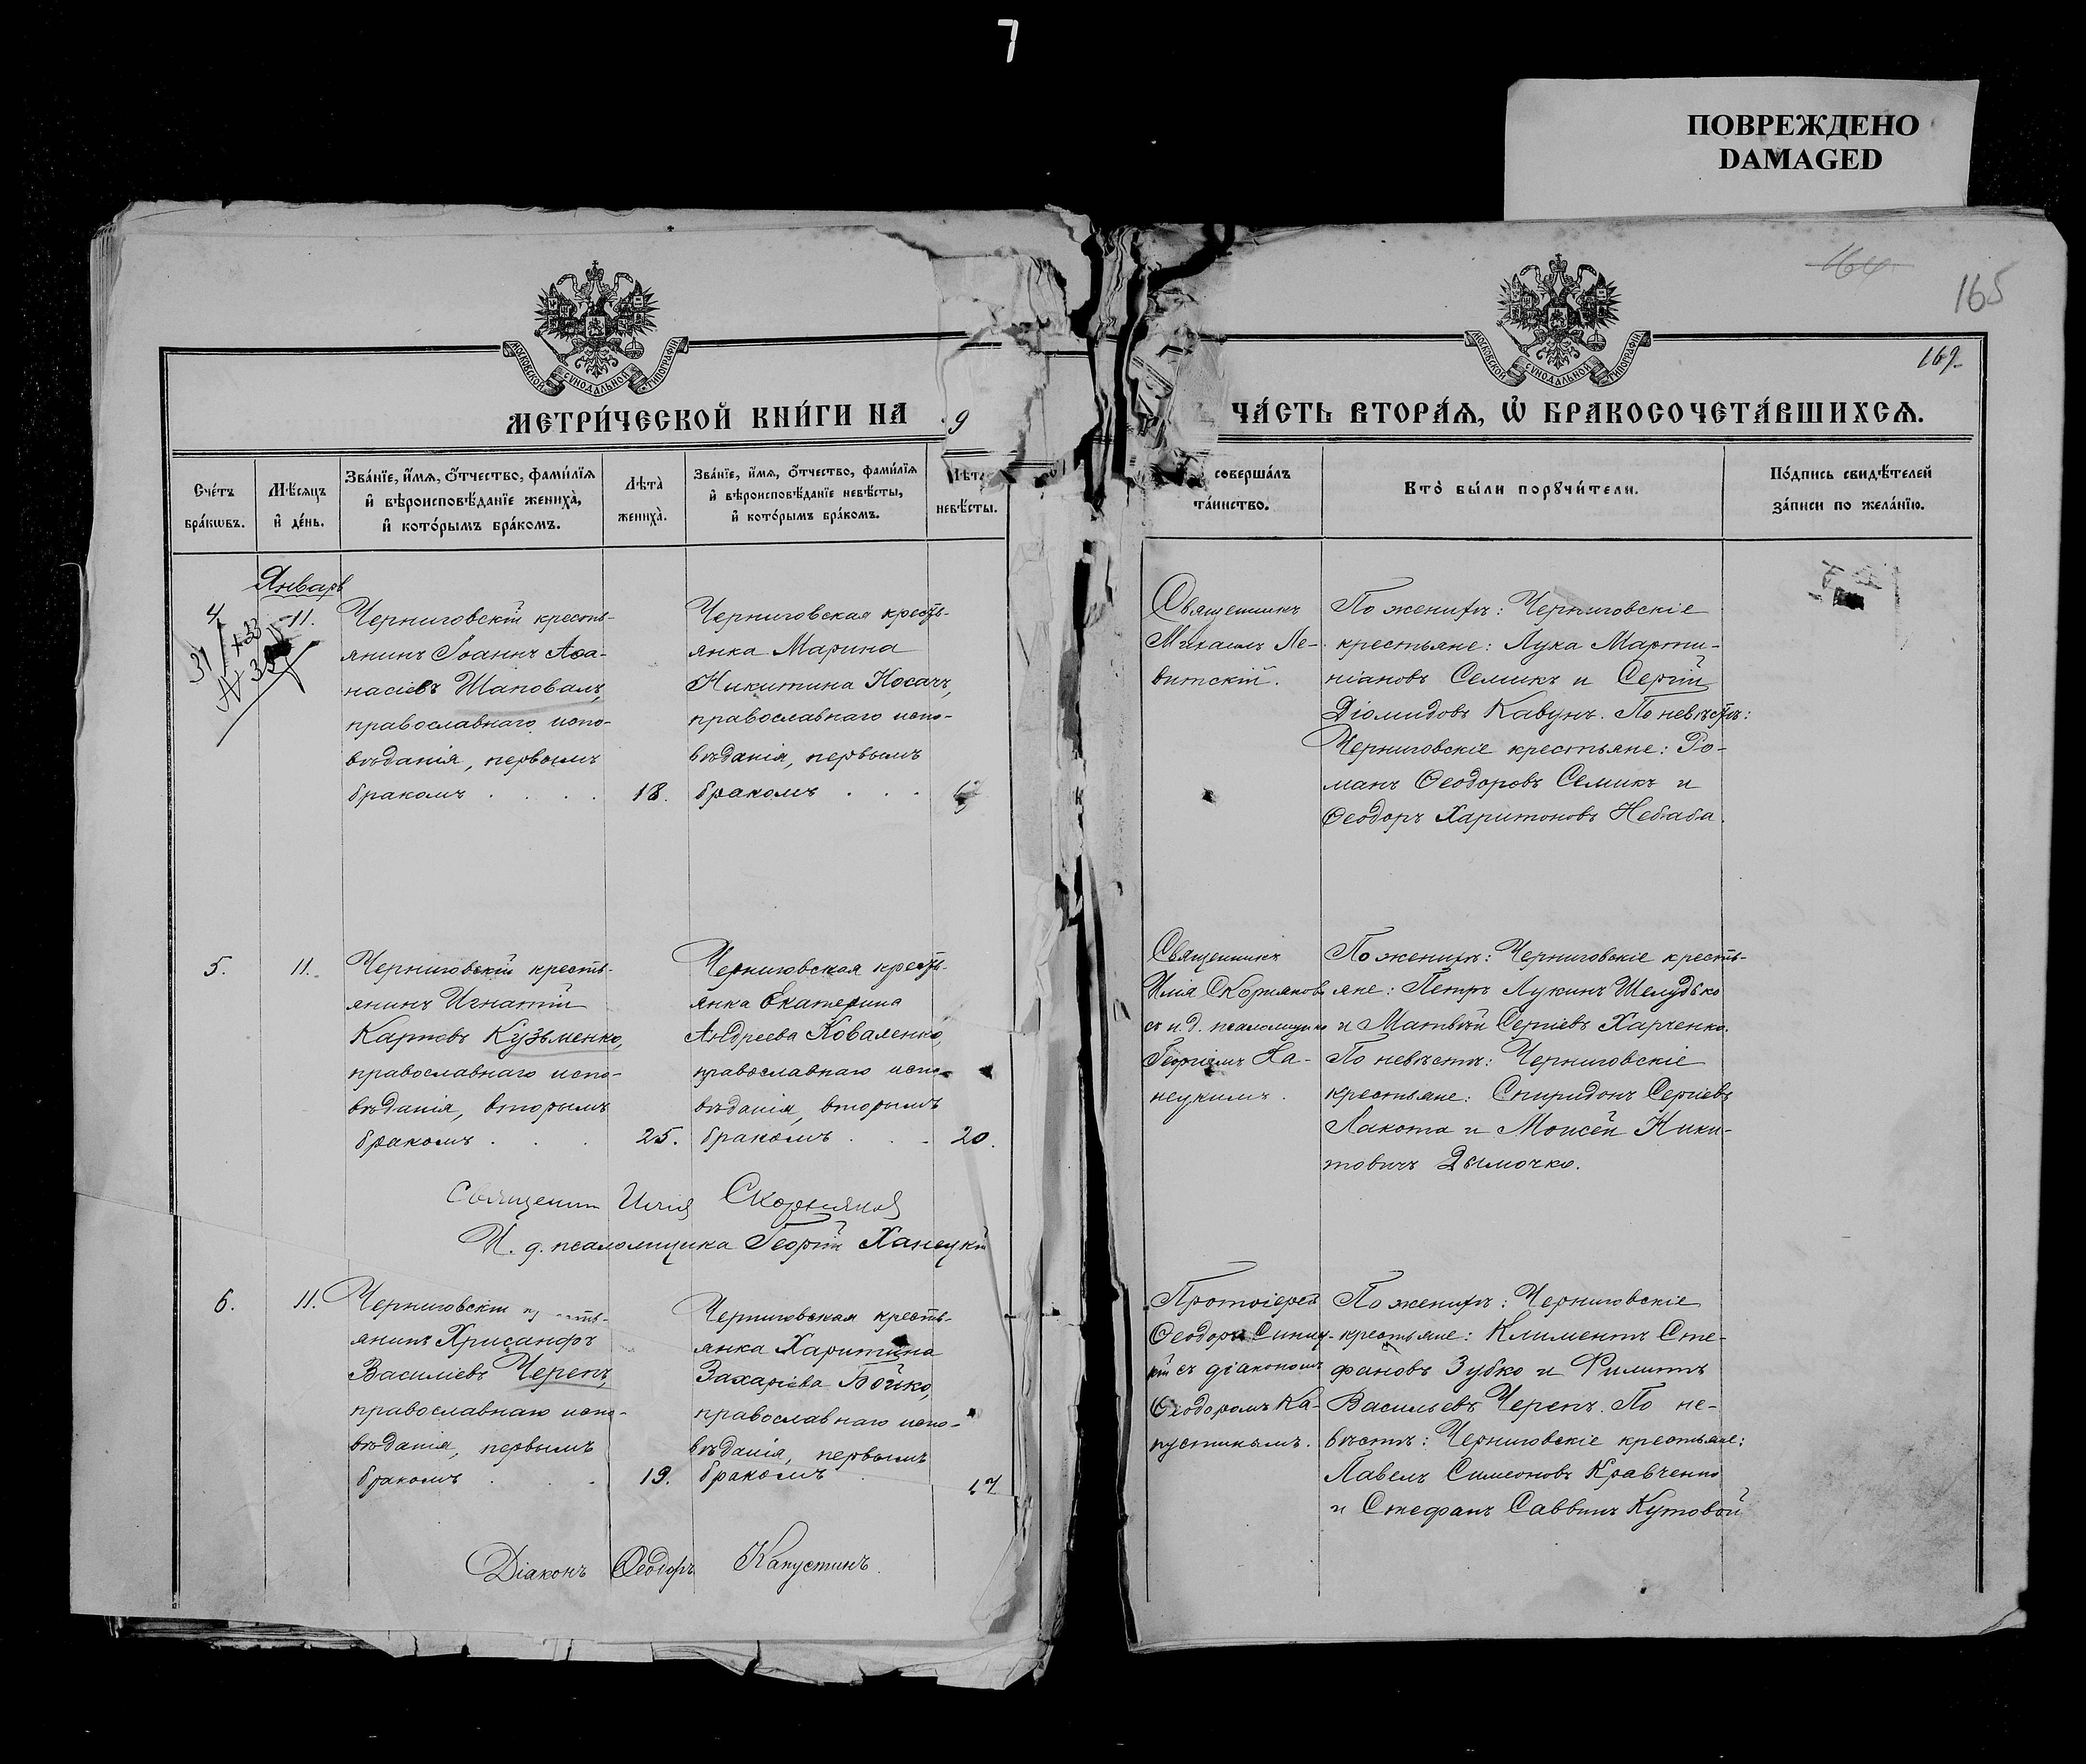 7
ПОВРЕЖДЕНО
DAMAGED
165
169.
МОСКОВСКОЙ СѴНОДАЛЬНОЙ ТИПОГРАФІИ
МОСКОВСКОЙ СѴНОДАЛЬНОЙ ТИПОГРАФІИ
МЕТРИ́ЧЕСКОЙ КНИ́ГИ НА 9
ЧА́СТЬ ВТОРА́Я, Ѡ҆ БРАКОСОЧЕТА́ВШИХСЯ.
Сче́тъ
бра́кѡвъ.
Мѣ́сяцъ
и҆ де́нь.
Зва́нїе, и҆́мя, ѻ҆́тчество, фами́лїя
и҆ вѣроисповѣ́данїе жениха̀,
и҆ кото́рымъ бра́комъ.
Лѣта̀
жениха̀.
Зва́нїе, и҆́мя, ѻ҆́тчество, фами́лїя
и҆ вѣроисповѣ́данїе невѣ́сты,
и҆ кото́рымъ бра́комъ.
Лѣта
невѣ́сты.
соверша́лъ
та́инство.
Кто̀ бы́ли порꙋчи́тели.
По́дпись свидѣ́телей
за́писи по жела́нїю.
Январь
4. 11.
Черниговскій кресть-
янинъ Іоаннъ Аѳа-
насіевъ Шаповалъ,
православнаго испо-
вѣданія, первымъ
бракомъ . . . . 18.
Черниговская кресть-
янка Марина
Никитина Носачъ,
православнаго испо-
вѣданія, первымъ
бракомъ . . .
Священникъ
Михаилъ Ле-
витскій.
По женихѣ: Черниговскіе
крестьяне: Лука Марти-
ніановъ Семикъ и Сергій
Діомидовъ Кавунъ. По невѣстѣ:
Черниговскіе крестьяне: Ро-
манъ Ѳеодоровъ Семикъ и
Ѳеодоръ Харитоновъ Небаба.
5. 11.
Черниговскій кресть-
янинъ Игнатій
Карповъ Кузьменко,
православнаго испо-
вѣданія, вторымъ
бракомъ . . . 25.
Черниговская кресть-
янка Екатерина
Андреева Коваленко,
православнаго испо-
вѣданія, вторымъ
бракомъ . . . 20.
Священникъ
Илія Скорняковъ
съ и.д. псаломщика
Георгіемъ Ха-
нецкимъ.
По женихѣ: Черниговскіе кресть-
яне: Петръ Лукинъ Шелудько
и Матвѣй Сергіевъ Харченко.
По невѣстѣ: Черниговскіе
крестьяне: Спиридонъ Сергіевъ
Лакота и Моисей Ники-
товичъ Дымочко.
Священникъ Илія Скорняковъ
И. д. псаломщика Георгій Ханецкій
6. 11.
Черниговскій кресть-
янинъ Хрисанфъ
Василіевъ Черепъ,
православнаго испо-
вѣданія, первымъ
бракомъ . . 19.
Черниговская кресть-
янка Харитина
Захаріева Бойко,
православнаго испо-
вѣданія, первымъ
бракомъ . 17
Протоіерей
Ѳеодоръ Синиц-
кій съ діакономъ
Ѳеодоромъ Ка-
пустинымъ.
По женихѣ: Черниговскіе
крестьяне: Климентъ Сте-
фановъ Зубко и Филиппъ
Васильевъ Черепъ. По не-
вѣстѣ: Черниговскіе крестьяне:
Павелъ Симеоновъ Кравченко
и Стефанъ Саввинъ Кутовой
Діаконъ Ѳеодоръ Капустинъ.